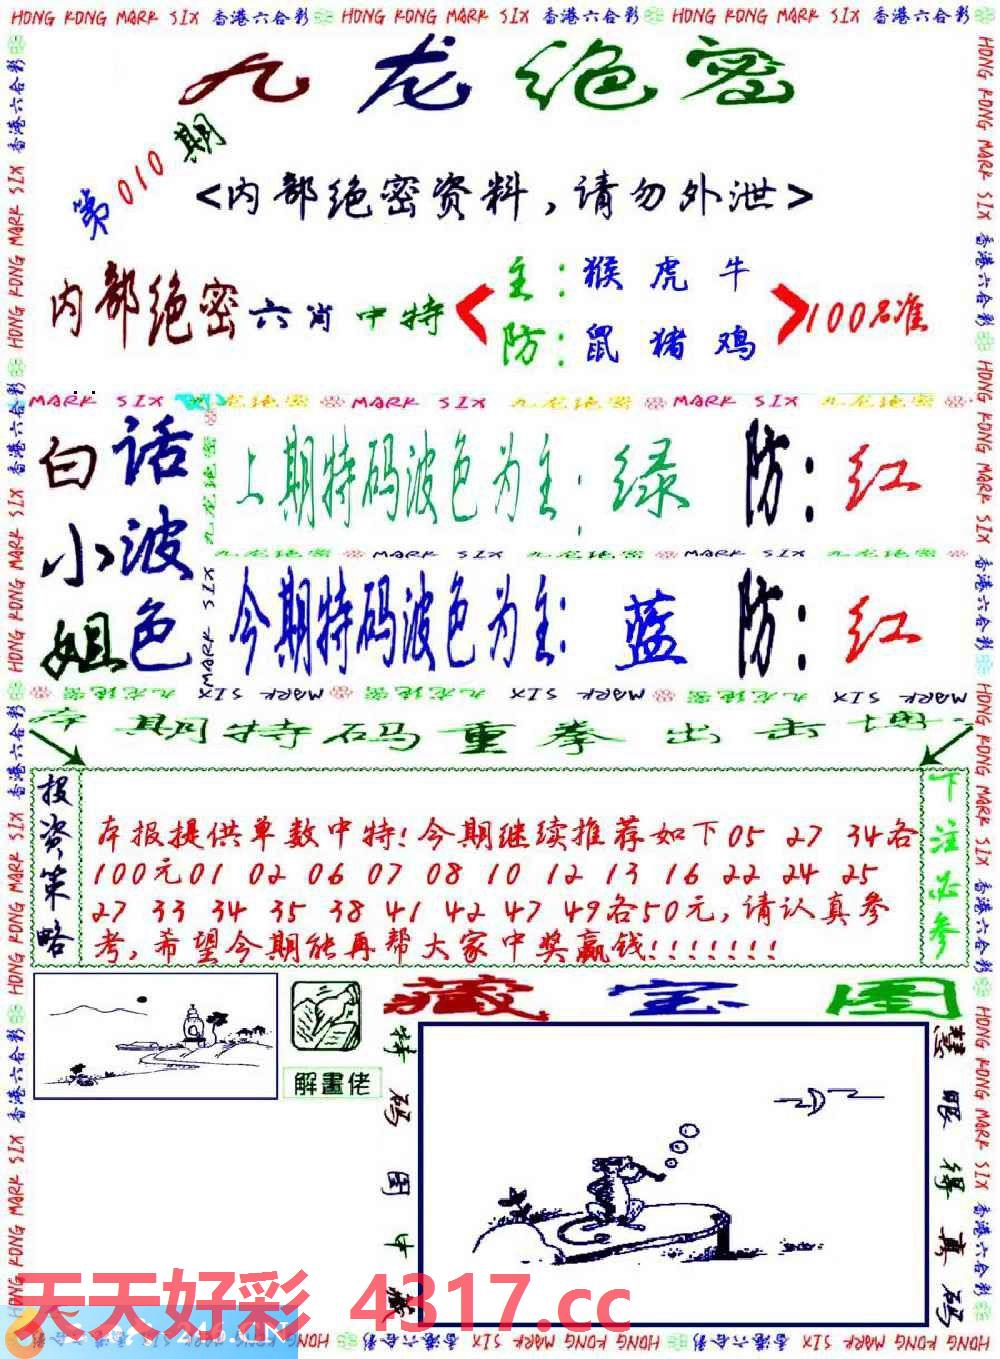 HONG KONG MARK SIX 香港六合彩 HONG KONG MARK SIX 香港六合彩 HONG KONG MARK SIX 香港六合彩
九龙绝密
第010期
<内部绝密资料，请勿外泄>
内部绝密六肖中特
主：猴 虎 牛
防：鼠 猪 鸡
100%准
MARK SIX 九龙绝密 MARK SIX 九龙绝密 MARK SIX 九龙绝密
白话
小波
姐色
上期特码波色为主：绿 防：红
九龙绝密 MARK SIX 九龙绝密 MARK SIX 九龙绝密
今期特码波色为主：蓝 防：红
本期特码重拳出击
投资策略
本报提供单数中特!今期继续推荐如下05 27 34各
100元01 02 06 07 08 10 12 13 16 22 24 25
27 33 34 35 38 41 42 47 49各50元,请认真参
考,希望今期能再帮大家中奖赢钱!!!!!!!
下注必参
藏宝图
解畫佬
特码图中藏
慧眼得真码
天天好彩 4317.cc